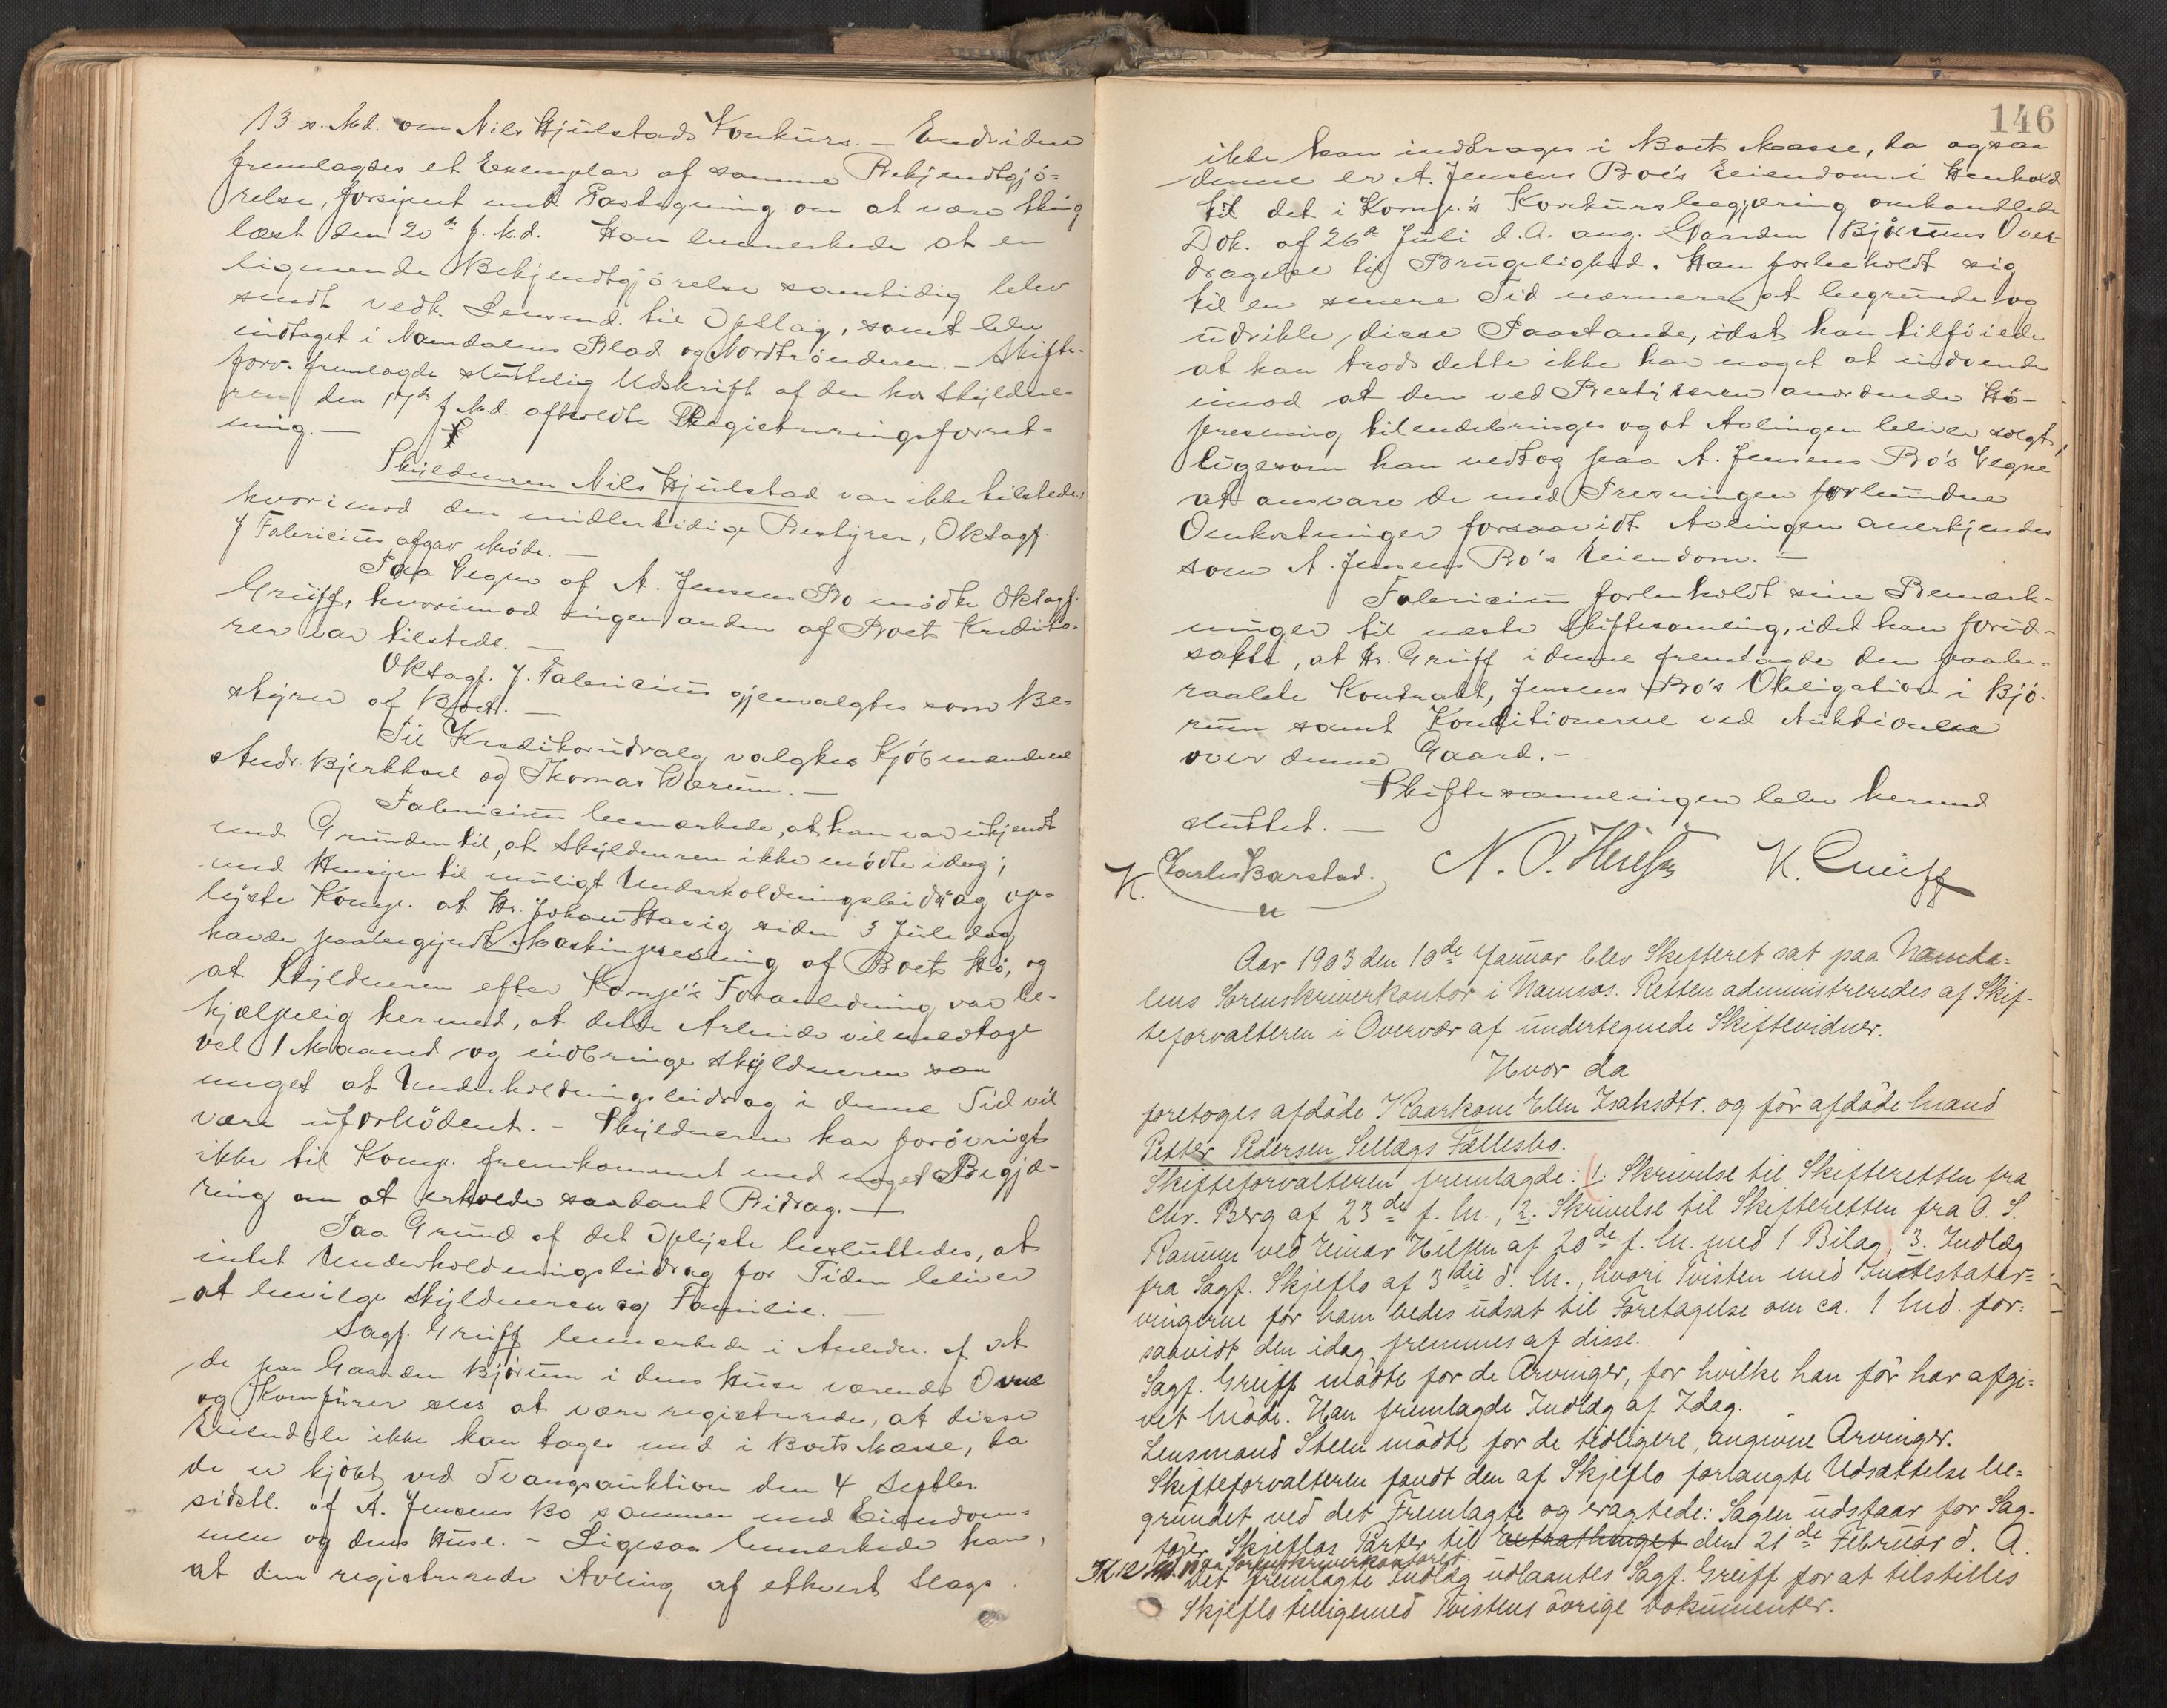 13 s. Md. om Nils Hjulstads Konkurs. – Endvidere
fremlagdes et Exemplar af samme Bekjendtgjö-
relse, forsynet med Paategning om at være thing
læst den 20de f. Md. Han bemerkede at en
lignende Bekjendtgjörelse samtidig blev
sendt vedk. Lensmd. til Opslag, samt blev
indtaget i Namdalens Blad og Nordtrönderen. – Skifte-
forv. fremlagde sluttelig Udskrift af den hos Skyldne-
ren den 17de f. Md. afholdte Registreringsforret-
ning. –
Skyldneren Nils Hjulstad var ikke tilstede,
hvorimod den midlertidige Bestyrer, Oktsagf.
J Fabricius afgav Möde. –
Paa Vegne af A. Jensens Bo mödte Oktsagf.
Greiff, hvorimod ingen anden af Boets Kredito-
rer var tilstede. –
Oktsagf. J. Fabricius gjenvalgtes som Be-
styrer af Boet. –
Til Kreditorudvalg valgtes Kjöbmændene
Andr. Bjerkhoel og Thomas Wærum. –
Fabricius bemærkede, at han var ukjendt
med Grunden til, at Skyldneren ikke mödte idag;
med Hensyn til muligt Underholdningsbidrag op-
lyste Komp. at Hr. Johan Havig siden 3 Juledag
havde paabegyndt Maskinpresning af Boets Hö, og
at Skyldneren efter Komp's Foranledning var be-
hjælpelig hermed, at dette Arbeide vil medtage
vel 1 Maaned og indbringe Skyldneren saa
meget at Underholdningsbidrag i denne Tid vil
være ufornödent. – Skyldneren har forövrigt
ikke til Komp. fremkommet med noget Begjæ-
ring om at erholde saadant Bidrag. –
Paa Grund af det Oplyste besluttedes, at
intet Underholdningsbidrag for Tiden bliver
at bevilge Skyldneren og Familie. –
Sagf. Greiff bemerkede i Anledn. af at
de paa Gaarden Björum i dens Huse værende Ovne
og Komfürer sees at være registrerede, at disse
Eiendele ikke kan tages med i Boets Masse, da
de er kjöbt ved Tvangsauktion den 4 Septbr.
sidstl. af A. Jensens Bo sammen med Eiendom-
men og dens Huse. – Ligesaa bemerkede han,
at den registrerede Avling af ethvert Slags
146
ikke kan inddrages i Boets Masse, da ogsaa
denne er A. Jensens Boe's Eiendom i Henhold
til det i Komp.'s Konkursbegjæring omhandlede
Dok. af 26de Juli d. A. ang. Gaarden Björums Over-
dragelse til Brugelighed. Han forbeholdt sig
til en senere Tid nærmere at begrunde og
udvikle disse Paastande, idet han tilföiede
at han trods dette ikke har noget at indvende
imod at den ved Bestyreren anordnede Hö-
presning tilendebringes og at Avlingen bliver solgt,
ligesom han vedtog paa A. Jensens Bo's Vegne
at ansvare de med Presningen forbundne
Omkostninger forsaavidt Avlingen anerkjendes
som A. Jensens Bo's Eiendom. –
Fabricius forbeholdt sine Bemærk-
ninger til næste Skiftesamling, idet han forud-
satte, at Hr. Greiff i denne fremlagde den paabe-
raabte Kontrakt, Jensens Bo's Obligation i Bjö-
rum samt Konditionerne ved Auktionen
over denne Gaard. –
Skiftesamlingen blev hermed
sluttet. –
Charles Barstad. K. Greiff
Aar 1903 den 10de Januar blev Skifteret sat paa Namda-
lens Sorenskriverkontor i Namsos. Retten administreredes af Skif-
teforvalteren i Overvær af undertegnede Skiftevidner.
Hvor da
foretoges afdöde Kaarkone Ellen Isaksdtr. og för afdöde Mand
Petter Pedersen Sellægs Fællesbo.
Skifteforvalteren fremlagde: 1. Skrivelse til Skifteretten fra
Chr. Berg af 23de f. M., 2. Skrivelse til Skifteretten fra O. S.
Ranum ved Einar Nilsen af 20de f. M. med 1 Bilag, 3. Indlæg
fra Sagf. Skjeflo af 3die d. M., hvori Tvisten med Intestatar-
vingerne for ham bedes udsat til Foretagelse om ca. 1 Md. for-
saavidt den idag fremmes af disse.
Sagf. Greiff mödte for de Arvinger, for hvilke han för har afgi-
vet Möde. Han fremlagde Indlæg af Idag.
Lensmand Steen mödte for de tidligere angivne Arvinger.
Skifteforvalteren fandt den af Skjeflo forlangte Udsættelse be-
grundet ved det Fremlagte og eragtede: Sagen udstaar for Sag-
förer Skjeflos Parter til Extrathinget den 21de Februar d. A.
Kl. 12 Md. paa Sorenskriverkontoret.
Det fremlagte Indlæg udlaantes Sagf. Greiff for at tilstilles
Skjeflo tilligemed Tvistens övrige Dokumenter.